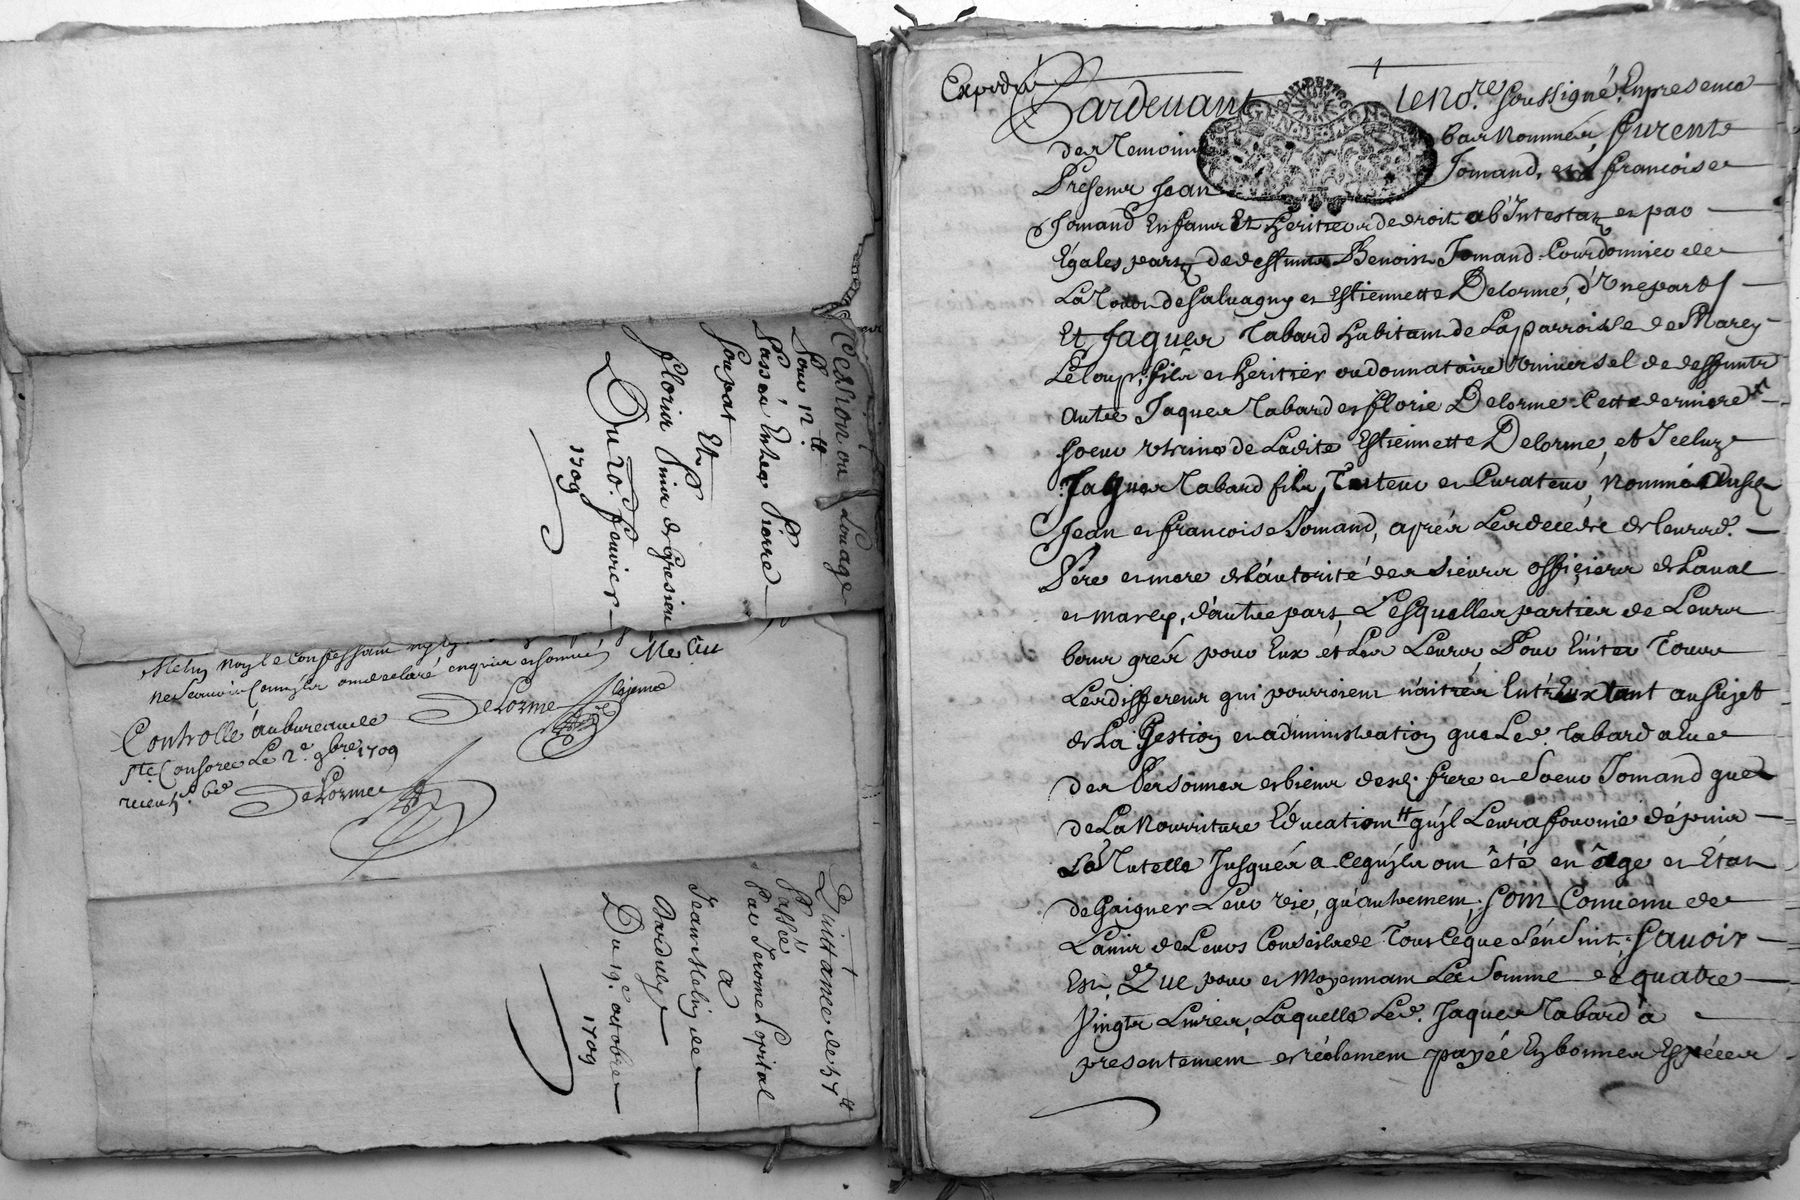 Cession ou Louage
Pour 12 tt
Passé a Enher Pierre
Soupat
Et
florier Pina de Gresieu
Du 20.e fevrier
1709
Melin
ne scavoir
Controllé au bureau de
Ste Consorce Le 2.e 9bre. 1709
DeLorme
DeLorme
Quittance de 57 tt
Passé
Par Jerome Lopital
A
Jean
Du 19.e octobre
1709
Expedié
Pardevant Le No.re soussigné, En presence
des Temoins bas Nommés, furent
GEN. DE LION
Presens Jean Jomand, et françoise
Jomand Enfans Et heritiers de droit ab'Intestat et par
Egales parts de deffunts Benoist Jomand Courdonnier de
La Tour de Salvagny et Estiennette Delorme, d'Une part
Et Jaques Tabard habitant de La parroisse de Marcy
Le loup, fils et heritier ou donnataire Universel de deffunts
autre Jaques Tabard et florie Delorme Cette derniere
soeur Uterine de Ladite Estiennette Delorme, et Iceluy
Jaques Tabard fils, Tuteur et Curateur, Nommé Ausd.
Jean et françoise Jomand, aprés Les decéds de leurs d.
Pére et mere de l'autorité des sieurs officiers de Laval
et marcy, d'autre part, Lesquelles parties de Leurs
bons gréz pour Eux et Les Leurs Pour Eviter Tous
Les differens qui pourroient n'aitrés Entr'Eux tant au sujet
de La Gestion et administration que Le d. Tabard a Eue
des Personnes et biens desd. frere et soeur Jomand que
de La Nourriture Education qu'il Leur a fournie dépuis
La Tutelle Jusqués a Ce qu'ils ont été en âge et Etat
de Gaigner Leur vie, qu'autrement, sont Convenu de
L'avis de Leurs Conseils de Tout Ce que s'en Suit, sçavoir
Est, Que pour et Moyennant La Somme de quatre
Vingts Livres, Laquelle Le d. Jaques Tabard à
presentement et réelement payée En bonnes Espéces